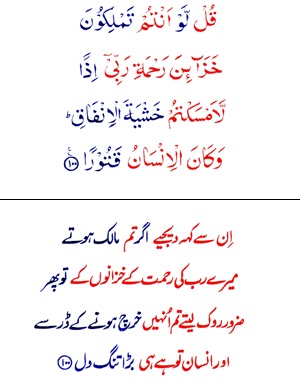 قُلْ لَّوْ اَنْتُمْ تَمْلِكُوْنَ
خَزَآئِنَ رَحْمَةِ رَبِّيْٓ اِذًا
لَّاَمْسَكْتُمْ خَشْيَةَ الْاِنْفَاقِ ؕ
وَكَانَ الْاِنْسَانُ قَتُوْرًا ۧ﴿۱۰۰﴾
اِن سے کہہ دیجیے اگر تم مالک ہوتے
میرے رب کی رحمت کے خزانوں کے تو پھر
ضرور روک لیتے تم اُنہیں خرچ ہونے کے ڈر سے
اور انسان تو ہے ہی بڑا تنگ دل ﴿۱۰۰﴾